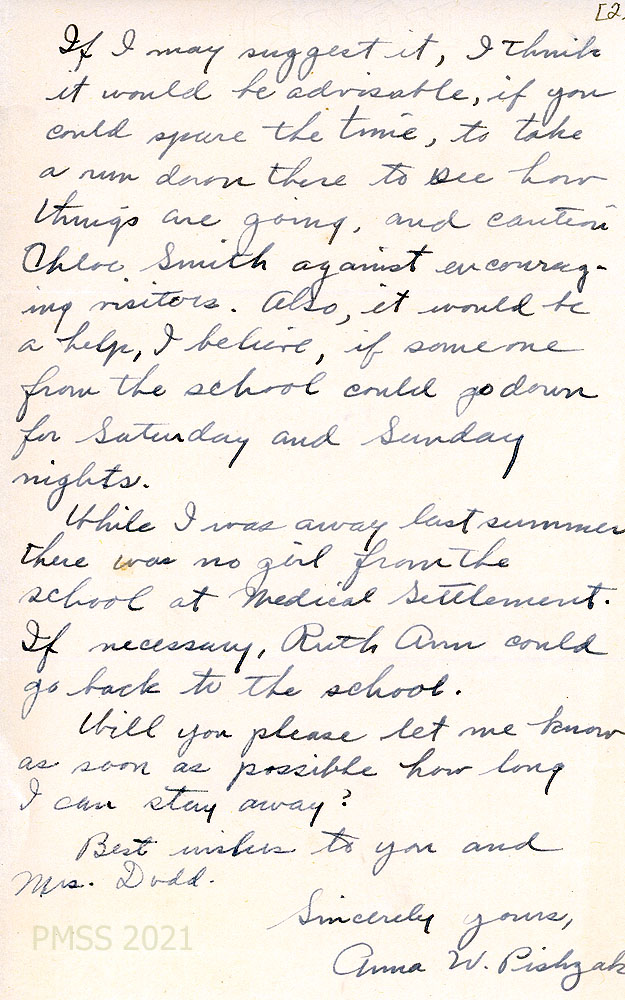 [2.
If I may suggest it, I think
it would be advisable, if you
could spare the time, to take
a run down there to see how
things are going, and caution
Chloe Smith against encourag-
ing visitors. Also, it would be
a help, I believe, if someone
from the school could go down
for Saturday and Sunday
nights.
While I was away last summer
there was no girl from the
school at Medical Settlement.
If necessary, Ruth Ann could
go back to the school.
Will you please let me know
as soon as possible how long
I can stay away?
Best wishes to you and
Mrs. Dodd.
Sincerely yours,
Anna W. Pishzak
PMSS 2021